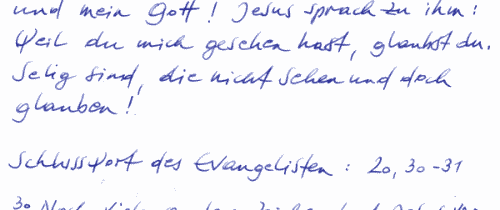 und mein Gott! Jesus sprach zu ihm:
Weil du mich gesehen hast, glaubst du.
Selig sind, die nicht sehen und doch
glauben!
Schlusswort des Evangelisten: 20, 30-31
30 Noch viele andere Zeichen hat Jesus